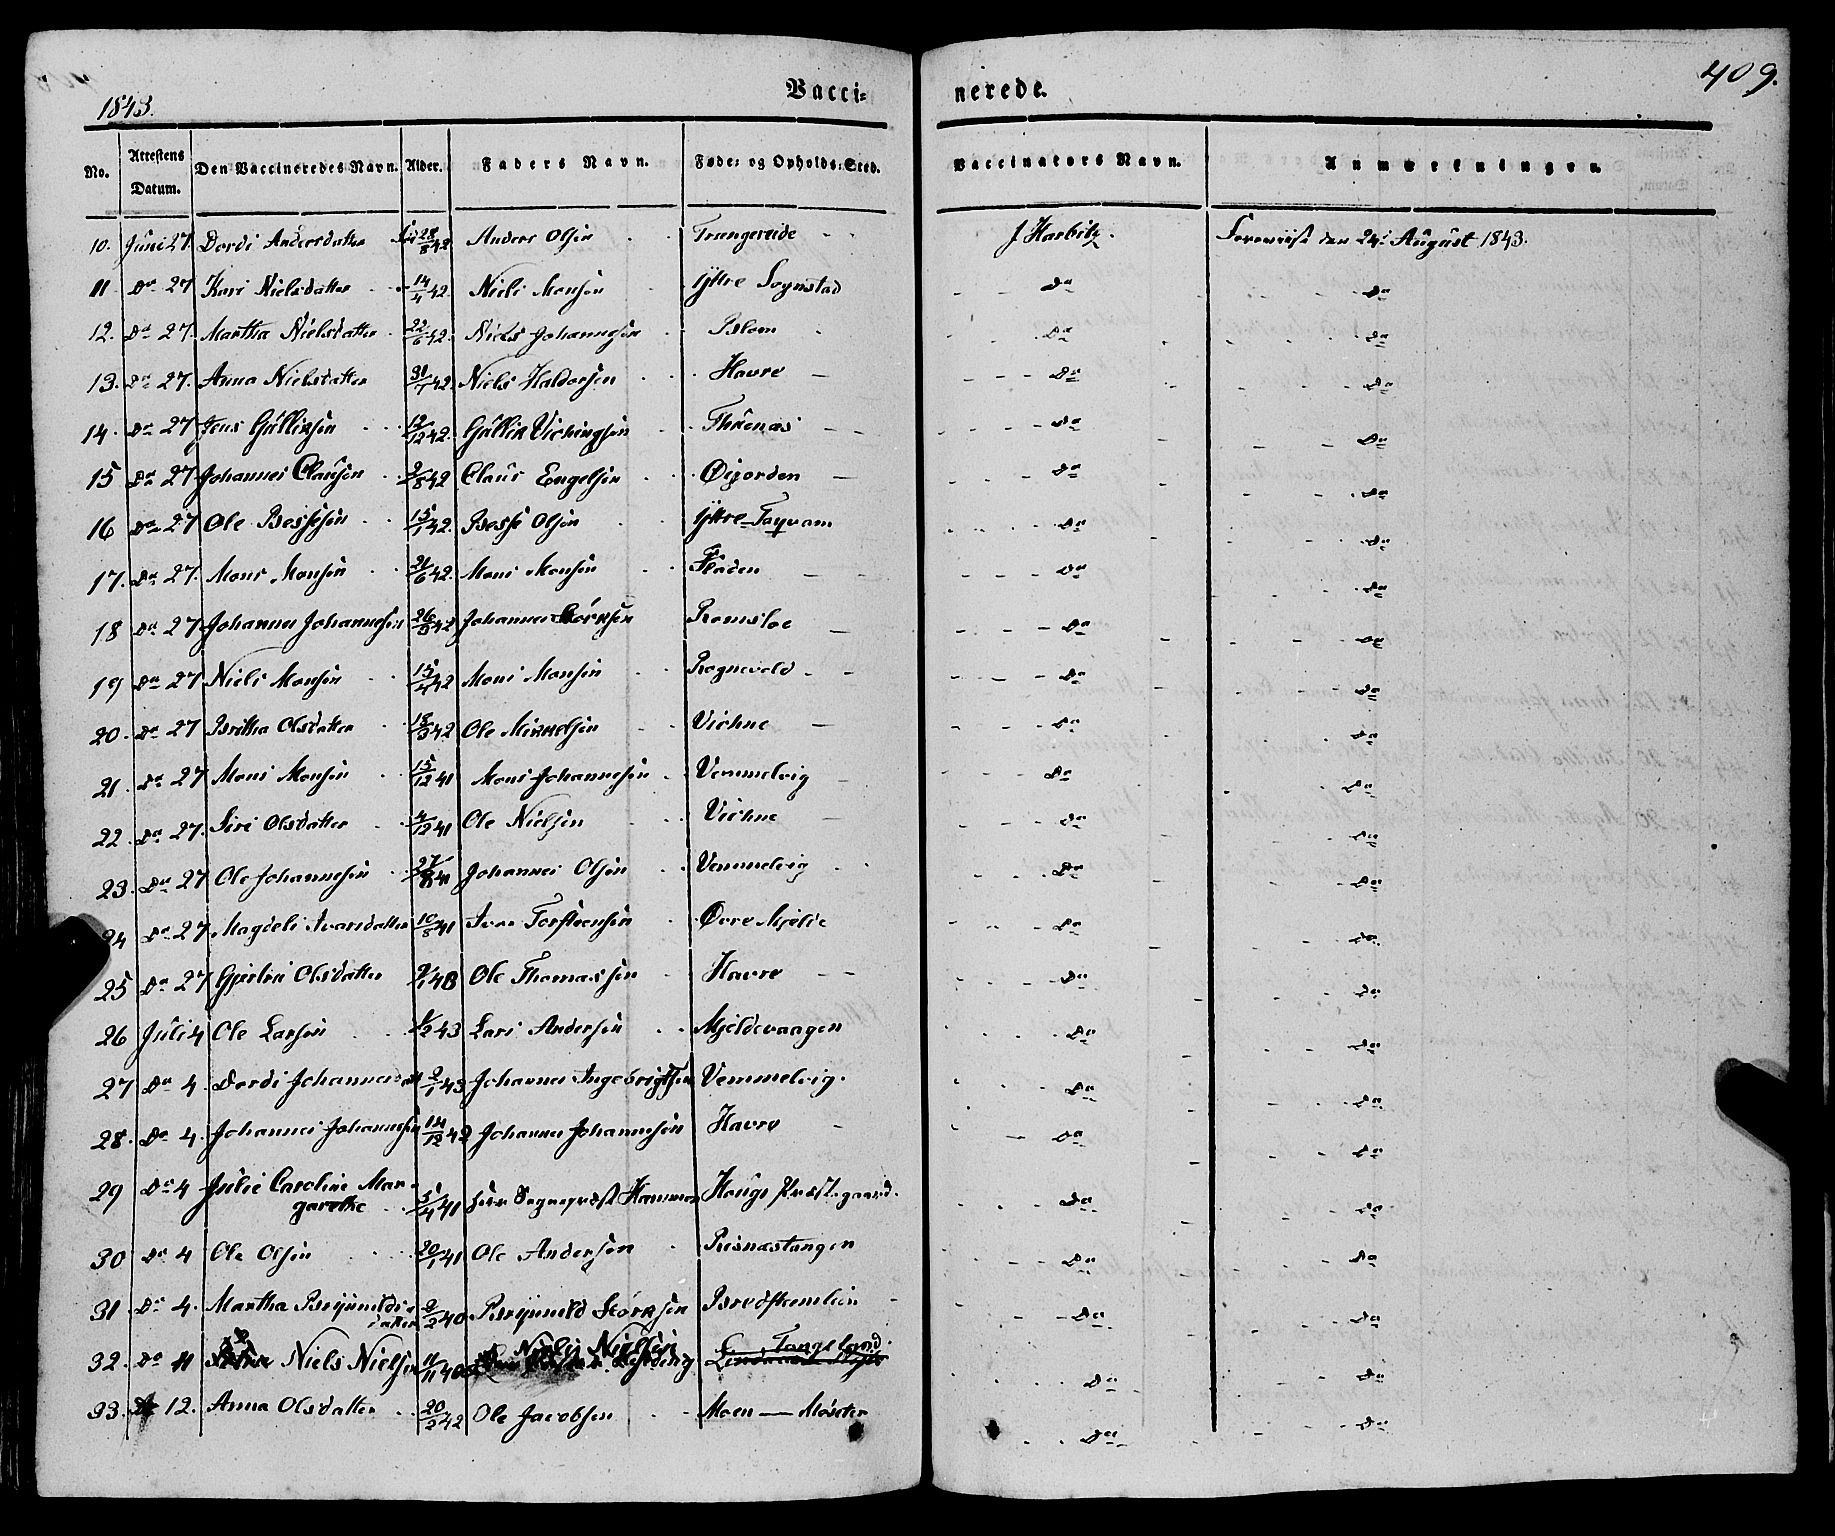 409.
1843.
Vacci- nerede.
No. Attestens Datum. Den Vaccineredes Navn. Alder. Faders Navn. Føde- og Opholds-Sted. Vaccinateurs Navn. Anmærkninger.
10. Juni 27. Dordi Andersdatter 28/8 42 Anders Olsen Trængereide J Harbitz. Foreviist den 24de August 1843.
11 Do 27 Kari Nielsdatter 14/4 42. Niels Monsen Yttre Sognstad Do Do
12. Do 27. Martha Nielsdatter 22/6 42. Niels Johannesen Do Do
13. Do 27. Anna Nielsdatter 31/7 42. Niels Haldorsen Havre Do Do
14. Do 27 Jens Gullicksen 12/12 42. Gullik Vichingsen Do Do
15 Do 27 Johannes Clausen 2/8 42 Claus Engelsen Øijorden Do Do
16 Do 27 Ole Bessesen 15/1 42. Besse Olsen Yttre Do Do
17. Do 27. Mons Monsen 21/6 42. Mons Monsen Fladen Do Do
18 Do 27 Johannes Johannesen 26/3 42 Johannes Størksen Romsloe Do Do
19 Do 27 Niels Monsen 15/4 42 Mons Monsen Rognevold Do Do
20. Do 27 Britha Olsdatter 18/3 42 Ole Mikkelsen Vichne Do Do
21. Do 27 Mons Monsen 15/12 41 Mons Johannesen Vemmelvig Do Do
22. Do 27. Siri Olsdatter 4/12 41 Ole Nielsen Vichne Do Do
23. Do 27 Ole Johannesen 27/ 41 Johannes Olsen Vemmelvig Do Do
24 Do 27 Magdeli Ivarsdatter 10/8 41 Iver Torsteensen Øvre Mjelde Do Do
25 Do 27 Olsdatter Ole Thomassen Havre Do Do
26 Juli 4 Ole Larsen 1/2 43 Lars Andersen Mjeldevaagen Do Do
27 Do 4. Dordi Johannesdatt 2/1 43 Johannes Ingebrigtsen Vemmelvig. Do Do
28. Do 4. Johannes Johannesen 14/12 42 Johannes Johannesen Havre Do Do
29 Do 4 Julie Caroline Mar-
garethe 5/4 41 Herr Sognepræst Hammer Hougs Præstegaard. Do Do
30 Do 4 Ole Olsen 20/1 41 Ole Andersen Risnæstangen Do Do
31 Do 4. Martha Brynnilds-
datter 2/2 40 Brynnild Størksen Bredsteenlien Do Do
32. Do 11 Niels Nielsen 11/11 40 Niels Nielsen Tangeland Do Do
33. Do 12. Anna Olsdatter 20/2 42 Ole Jacobsen Moen — Møster Do Do